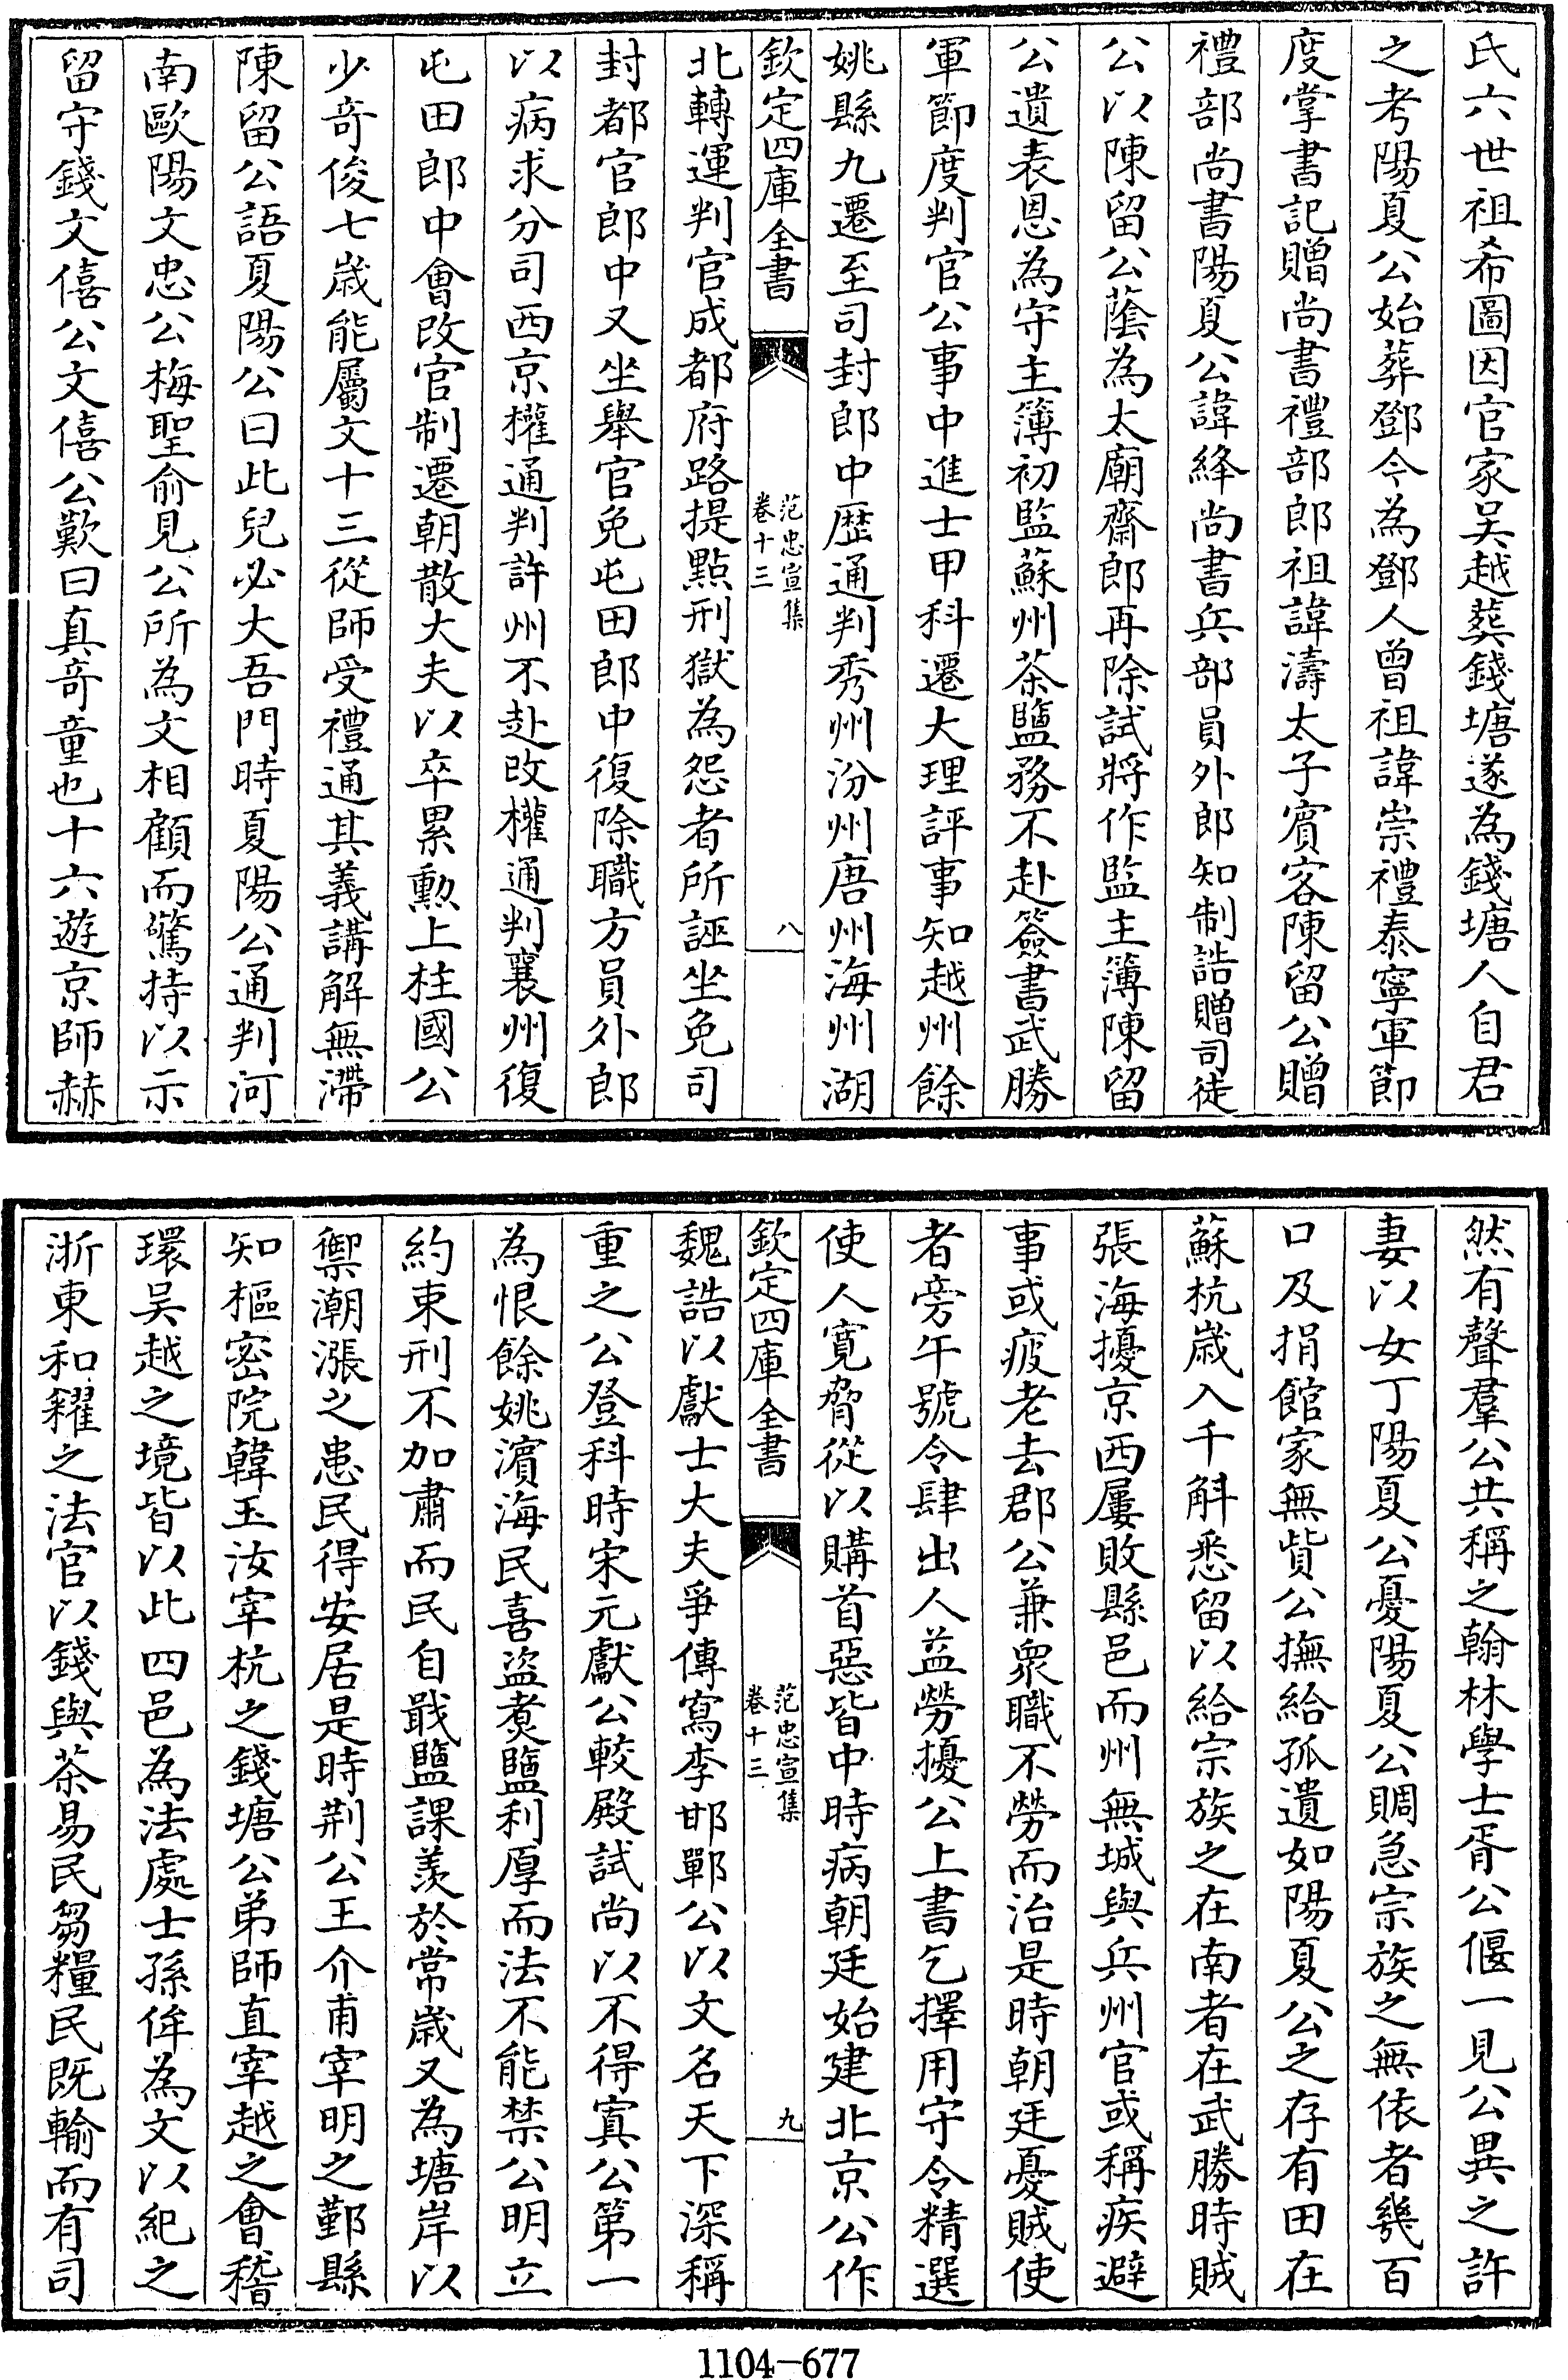 氏六世祖希圖因官家吴越葬錢塘遂為錢塘人自君
之考陽夏公始葬鄧今為鄧人曾祖諱崇禮泰寧軍節
度掌書記贈尚書禮部郎祖諱濤太子賓客陳留公贈
禮部尚書陽夏公諱絳尚書兵部員外郎知制誥贈司徒
公以陳留公蔭為太廟齋郎再除試將作監主簿陳留
公遺表恩為守主簿初監蘇州茶鹽務不赴簽書武勝
軍節度判官公事中進士甲科遷大理評事知越州餘
姚縣九遷至司封郎中歴通判秀州汾州唐州海州湖
欽定四庫全書
范忠宣集
卷十三
八
北轉運判官成都府路提點刑獄為怨者所誣坐免司
封都官郎中又坐舉官免屯田郎中復除職方員外郎
以病求分司西京權通判許州不赴改權通判襄州復
屯田郎中會改官制遷朝散大夫以卒累勲上柱國公
少奇俊七歳能屬文十三從師受禮通其義講解無滯
陳留公語夏陽公曰此兒必大吾門時夏陽公通判河
南歐陽文忠公梅聖俞見公所為文相顧而驚持以示
留守錢文僖公文僖公歎曰真奇童也十六遊京師赫
然有聲羣公共稱之翰林學士胥公偃一見公異之許
妻以女丁陽夏公憂陽夏公賙急宗族之無依者幾百
口及捐館家無貲公撫給孤遺如陽夏公之存有田在
蘇杭歳入千斛悉留以給宗族之在南者在武勝時賊
張海擾京西屢敗縣邑而州無城與兵州官或稱疾避
事或疲老去郡公兼衆職不勞而治是時朝廷憂賊使
者旁午號令肆出人益勞擾公上書乞擇用守令精選
使人寛脅從以購首惡皆中時病朝廷始建北京公作
欽定四庫全書
范忠宣集
卷十三
九
魏誥以獻士大夫爭傳寫李邯鄲公以文名天下深稱
重之公登科時宋元獻公較殿試尚以不得寘公第一
為恨餘姚濵海民喜盜煑鹽利厚而法不能禁公明立
約束刑不加肅而民自戢鹽課羨於常歳又為塘岸以
禦潮漲之患民得安居是時荆公王介甫宰明之鄞縣
知樞密院韓玉汝宰杭之錢塘公弟師直宰越之會稽
環吴越之境皆以此四邑為法處士孫侔為文以紀之
浙東和糴之法官以錢與茶易民芻糧民既輸而有司
1104-677